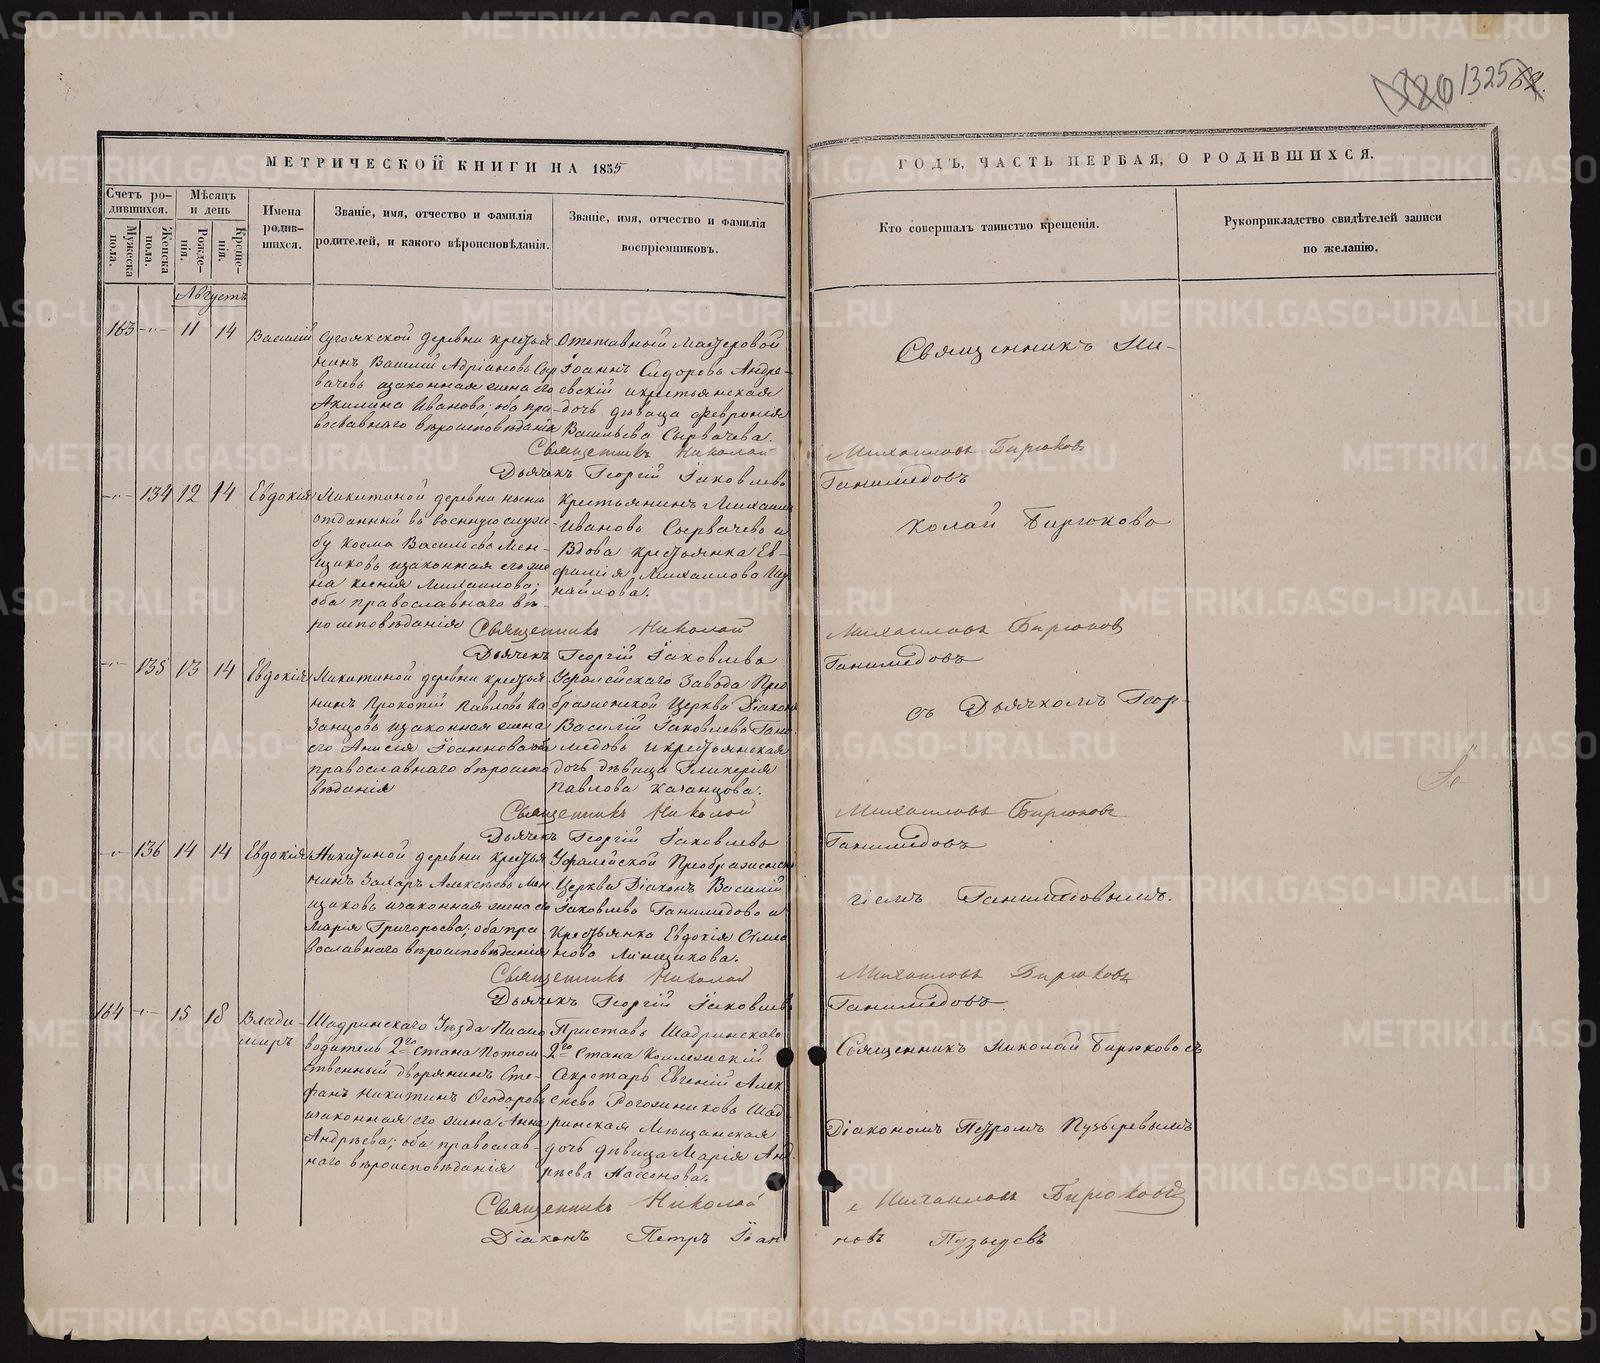 1325
МЕТРИЧЕСКОЙ КНИГИ НА 1855
ГОДЪ, ЧАСТЬ ПЕРВАЯ, О РОДИВШИХСЯ.
Счетъ ро-
дившихся.
Мужеска
пола.
Женска
пола.
Мѣсяцъ
и день
Рожде-
нія.
Креще-
нія.
Имена
родив-
шихся.
Званіе, имя, отчество и фамилія
родителей, и какого вѣроисповѣданія.
Званіе, имя, отчество и фамилія
воспріемниковъ.
Кто совершалъ таинство крещенія.
Рукоприкладство свидѣтелей записи
по желанію.
Августъ
163 -"- 11 14 Василій
деревни крестья
нинъ Василій Адріановъ Сыр
вачевъ изаконная жена его
Акилина Иванова; оба пра-
вославнаго вѣроисповѣданія
Отставный Мастеровой
Іоаннъ Сидоровъ Андре-
евскій икрестьянская
дочь дѣвица Февронія
Васильева Сырвачева.
Священникъ Ни-
Священникъ Николай Михаиловъ Бирюковъ
Дьячекъ Георгій Іаковлевъ Ганимедовъ
-"- 134 12 14 Евдокія
Никитиной деревни нынѣ
отданный въ военную служ-
бу Косма Васильевъ Мен-
щиковъ изаконная его же
на Ксенія Михаилова;
оба православнаго вѣ-
роисповѣданія
Крестьянинъ Михаилъ
Ивановъ Сырвачевъ и
Вдова крестьянка Ев-
фимія Михаилова
колай Бирюковъ
Священникъ Николай Михаиловъ Бирюковъ
Дьячекъ Георгій Іаковлевъ Ганимедовъ
-"- 135 13 14 Евдокія
Никитиной деревни крестья
нинъ Прокопій Павловъ Ка
занцовъ изаконная жена
его Анисія Іоаннова
православнаго вѣроиспо
вѣданія
Уфалейскаго Завода Прео
браженской Церкви Діаконъ
Василій Іаковлевъ Гани
медовъ икрестьянская
дочь дѣвица Гликерія
Павлова Казанцова.
съ Дьячкомъ Геор-
Священникъ Николай Михаиловъ Бирюковъ
Дьячекъ Георгій Іаковлевъ Ганимедовъ
-"- 136 14 14 Евдокія
Никитиной деревни крестья
нинъ Захаръ Алексѣевъ Мен
щиковъ изаконная жена его
Марія Григорьева; оба пра
вославнаго вѣроисповѣданія
Уфалейской Преображенской
Церкви Діаконъ Василій
Іаковлевъ Ганимедовъ и
Крестьянка Евдокія Симо
нова Менщикова.
гіемъ Ганимедовымъ.
Священникъ Николай Михаиловъ Бирюковъ
Дьячекъ Георгій Іаковлевъ Ганимедовъ.
164 -"- 15 18 Влади-
миръ
Шадринскаго Уѣзда Письмо
водитель 2го Стана Потом
ственный дворянинъ Сте-
фанъ Никитинъ Ѳеодоровъ
изаконная его жена Анна
Андрѣева; оба православ-
наго вѣроисповѣданія
Приставъ Шадринскаго
2го Стана Коллежскій
Секретарь Евгеній Алек
сѣевъ Рогожниковъ Шад
ринская Мѣщанская
дочь дѣвица Марія Анд-
рѣева Нассонова.
Священникъ Николай Бирюковъ съ
Діакономъ Петромъ Пузыревымъ
Священникъ Николай Михаиловъ Бирюковъ
Діаконъ Петръ Іоанновъ Пузыревъ
METRIKI.GASO-URAL.RU